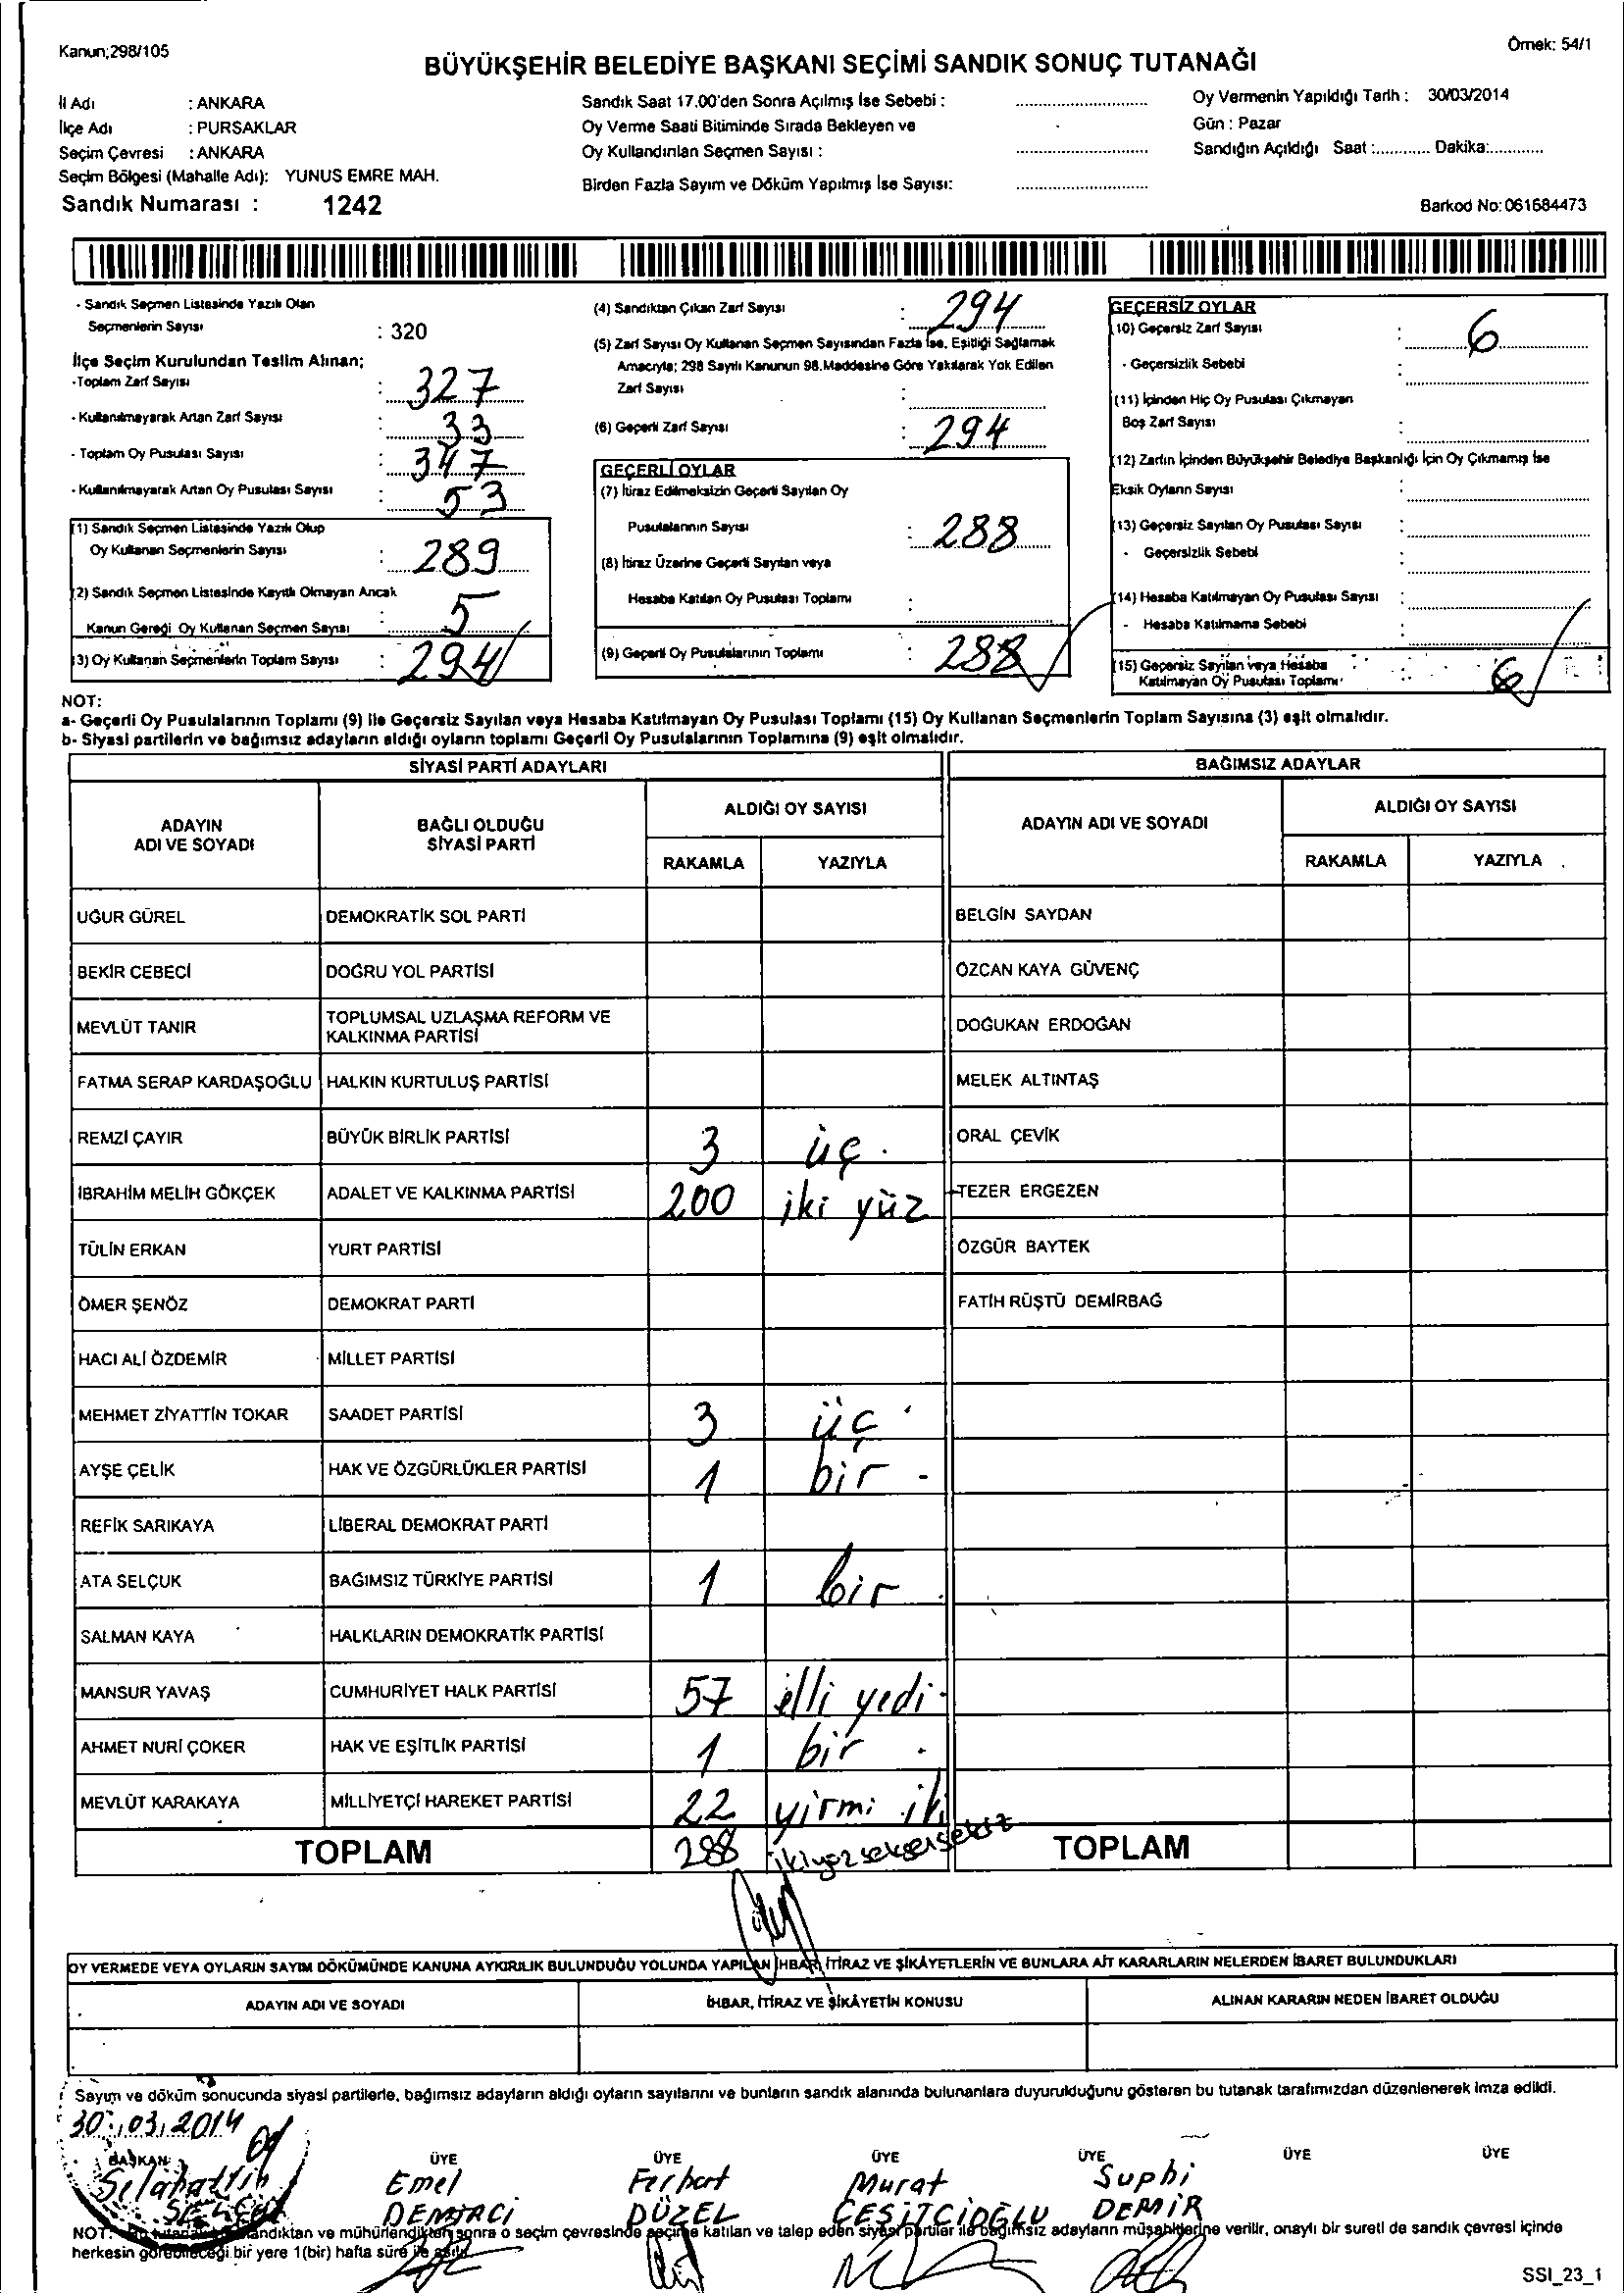 Kanun;298/105
Örnek: 54/1
BÜYÜKŞEHİR BELEDİYE BAŞKANI SEÇİMİ SANDIK SONUÇ TUTANAĞI
İl Adı : ANKARA
İlçe Adı : PURSAKLAR
Seçim Çevresi : ANKARA
Seçim Bölgesi (Mahalle Adı): YUNUS EMRE MAH.
Sandık Numarası : 1242
Sandık Saat 17.00'den Sonra Açılmış İse Sebebi :
Oy Verme Saati Bitiminde Sırada Bekleyen ve
Oy Kullandırılan Seçmen Sayısı :
Birden Fazla Sayım ve Döküm Yapılmış İse Sayısı:
Oy Vermenin Yapıldığı Tarih : 30/03/2014
Gün : Pazar
Sandığın Açıldığı Saat :............ Dakika:............
Barkod No: 061684473
- Sandık Seçmen Listesinde Yazılı Olan
Seçmenlerin Sayısı : 320
İlçe Seçim Kurulundan Teslim Alınan;
-Toplam Zarf Sayısı : 327
- Kullanılmayarak Artan Zarf Sayısı : 33
- Toplam Oy Pusulası Sayısı : 347
- Kullanılmayarak Artan Oy Pusulası Sayısı : 53
(1) Sandık Seçmen Listesinde Yazılı Olup
Oy Kullanan Seçmenlerin Sayısı : 289
(2) Sandık Seçmen Listesinde Kayıtlı Olmayan Ancak
Kanun Gereği Oy Kullanan Seçmen Sayısı : 5
(3) Oy Kullanan Seçmenlerin Toplam Sayısı : 294
(4) Sandıktan Çıkan Zarf Sayısı : 294
(5) Zarf Sayısı Oy Kullanan Seçmen Sayısından Fazla İse, Eşitliği Sağlamak
Amacıyla; 298 Sayılı Kanunun 98.Maddesine Göre Yakılarak Yok Edilen
Zarf Sayısı :
(6) Geçerli Zarf Sayısı : 294
GEÇERLİ OYLAR
(7) İtiraz Edilmeksizin Geçerli Sayılan Oy
Pusulalarının Sayısı : 288
(8) İtiraz Üzerine Geçerli Sayılan veya
Hesaba Katılan Oy Pusulası Toplamı :
(9) Geçerli Oy Pusulalarının Toplamı : 288
GEÇERSİZ OYLAR
10) Geçersiz Zarf Sayısı : 6
- Geçersizlik Sebebi :
(11) İçinden Hiç Oy Pusulası Çıkmayan
Boş Zarf Sayısı :
(12) Zarfın İçinden Büyükşehir Belediye Başkanlığı İçin Oy Çıkmamış İse
Eksik Oyların Sayısı :
(13) Geçersiz Sayılan Oy Pusulası Sayısı :
- Geçersizlik Sebebi :
(14) Hesaba Katılmayan Oy Pusulası Sayısı :
- Hesaba Katılmama Sebebi :
(15) Geçersiz Sayılan veya Hesaba
Katılmayan Oy Pusulası Toplamı : 6
NOT:
a- Geçerli Oy Pusulalarının Toplamı (9) ile Geçersiz Sayılan veya Hesaba Katılmayan Oy Pusulası Toplamı (15) Oy Kullanan Seçmenlerin Toplam Sayısına (3) eşit olmalıdır.
b- Siyasi partilerin ve bağımsız adayların aldığı oyların toplamı Geçerli Oy Pusulalarının Toplamına (9) eşit olmalıdır.
SİYASİ PARTİ ADAYLARI
BAĞIMSIZ ADAYLAR
ADAYIN ADI VE SOYADI
BAĞLI OLDUĞU SİYASİ PARTİ
ALDIĞI OY SAYISI
RAKAMLA YAZIYLA
ADAYIN ADI VE SOYADI
ALDIĞI OY SAYISI
RAKAMLA YAZIYLA
UĞUR GÜREL DEMOKRATİK SOL PARTİ BELGİN SAYDAN
BEKİR CEBECİ DOĞRU YOL PARTİSİ ÖZCAN KAYA GÜVENÇ
MEVLÜT TANIR TOPLUMSAL UZLAŞMA REFORM VE KALKINMA PARTİSİ DOĞUKAN ERDOĞAN
FATMA SERAP KARDAŞOĞLU HALKIN KURTULUŞ PARTİSİ MELEK ALTINTAŞ
REMZİ ÇAYIR BÜYÜK BİRLİK PARTİSİ 3 üç. ORAL ÇEVİK
İBRAHİM MELİH GÖKÇEK ADALET VE KALKINMA PARTİSİ 200 iki yüz TEZER ERGEZEN
TÜLİN ERKAN YURT PARTİSİ ÖZGÜR BAYTEK
ÖMER ŞENÖZ DEMOKRAT PARTİ FATİH RÜŞTÜ DEMİRBAĞ
HACI ALİ ÖZDEMİR MİLLET PARTİSİ
MEHMET ZİYATTİN TOKAR SAADET PARTİSİ 3 üç
AYŞE ÇELİK HAK VE ÖZGÜRLÜKLER PARTİSİ 1 bir -
REFİK SARIKAYA LİBERAL DEMOKRAT PARTİ
ATA SELÇUK BAĞIMSIZ TÜRKİYE PARTİSİ 1 bir
SALMAN KAYA HALKLARIN DEMOKRATİK PARTİSİ
MANSUR YAVAŞ CUMHURİYET HALK PARTİSİ 57 elli yedi
AHMET NURİ ÇOKER HAK VE EŞİTLİK PARTİSİ 1 bir
MEVLÜT KARAKAYA MİLLİYETÇİ HAREKET PARTİSİ 22 yirmi iki
TOPLAM 288 ikiyüzseksensekiz TOPLAM
OY VERMEDE VEYA OYLARIN SAYIM DÖKÜMÜNDE KANUNA AYKIRILIK BULUNDUĞU YOLUNDA YAPILAN İHBAR, İTİRAZ VE ŞİKÂYETLERİN VE BUNLARA AİT KARARLARIN NELERDEN İBARET BULUNDUKLARI
ADAYIN ADI VE SOYADI İHBAR, İTİRAZ VE ŞİKÂYETİN KONUSU ALINAN KARARIN NEDEN İBARET OLDUĞU
Sayım ve döküm sonucunda siyasi partilerle, bağımsız adayların aldığı oyların sayılarını ve bunların sandık alanında bulunanlara duyurulduğunu gösteren bu tutanak tarafımızdan düzenlenerek imza edildi.
30.03.2014
BAŞKAN ÜYE ÜYE ÜYE ÜYE ÜYE ÜYE
Selahattin Emel Ferhat Murat Suphi
DEMİRCİ DÜZEL ÇEŞİTCİOĞLU DEMİR
NOT: Bu tutanak sandıktan ve mühürlendikten sonra o seçim çevresinde seçime katılan ve talep eden siyasi partiler ile bağımsız adayların müşahitlerine verilir, onaylı bir sureti de sandık çevresi içinde
herkesin görebileceği bir yere 1(bir) hafta süre ile asılır.
SSI_23_1